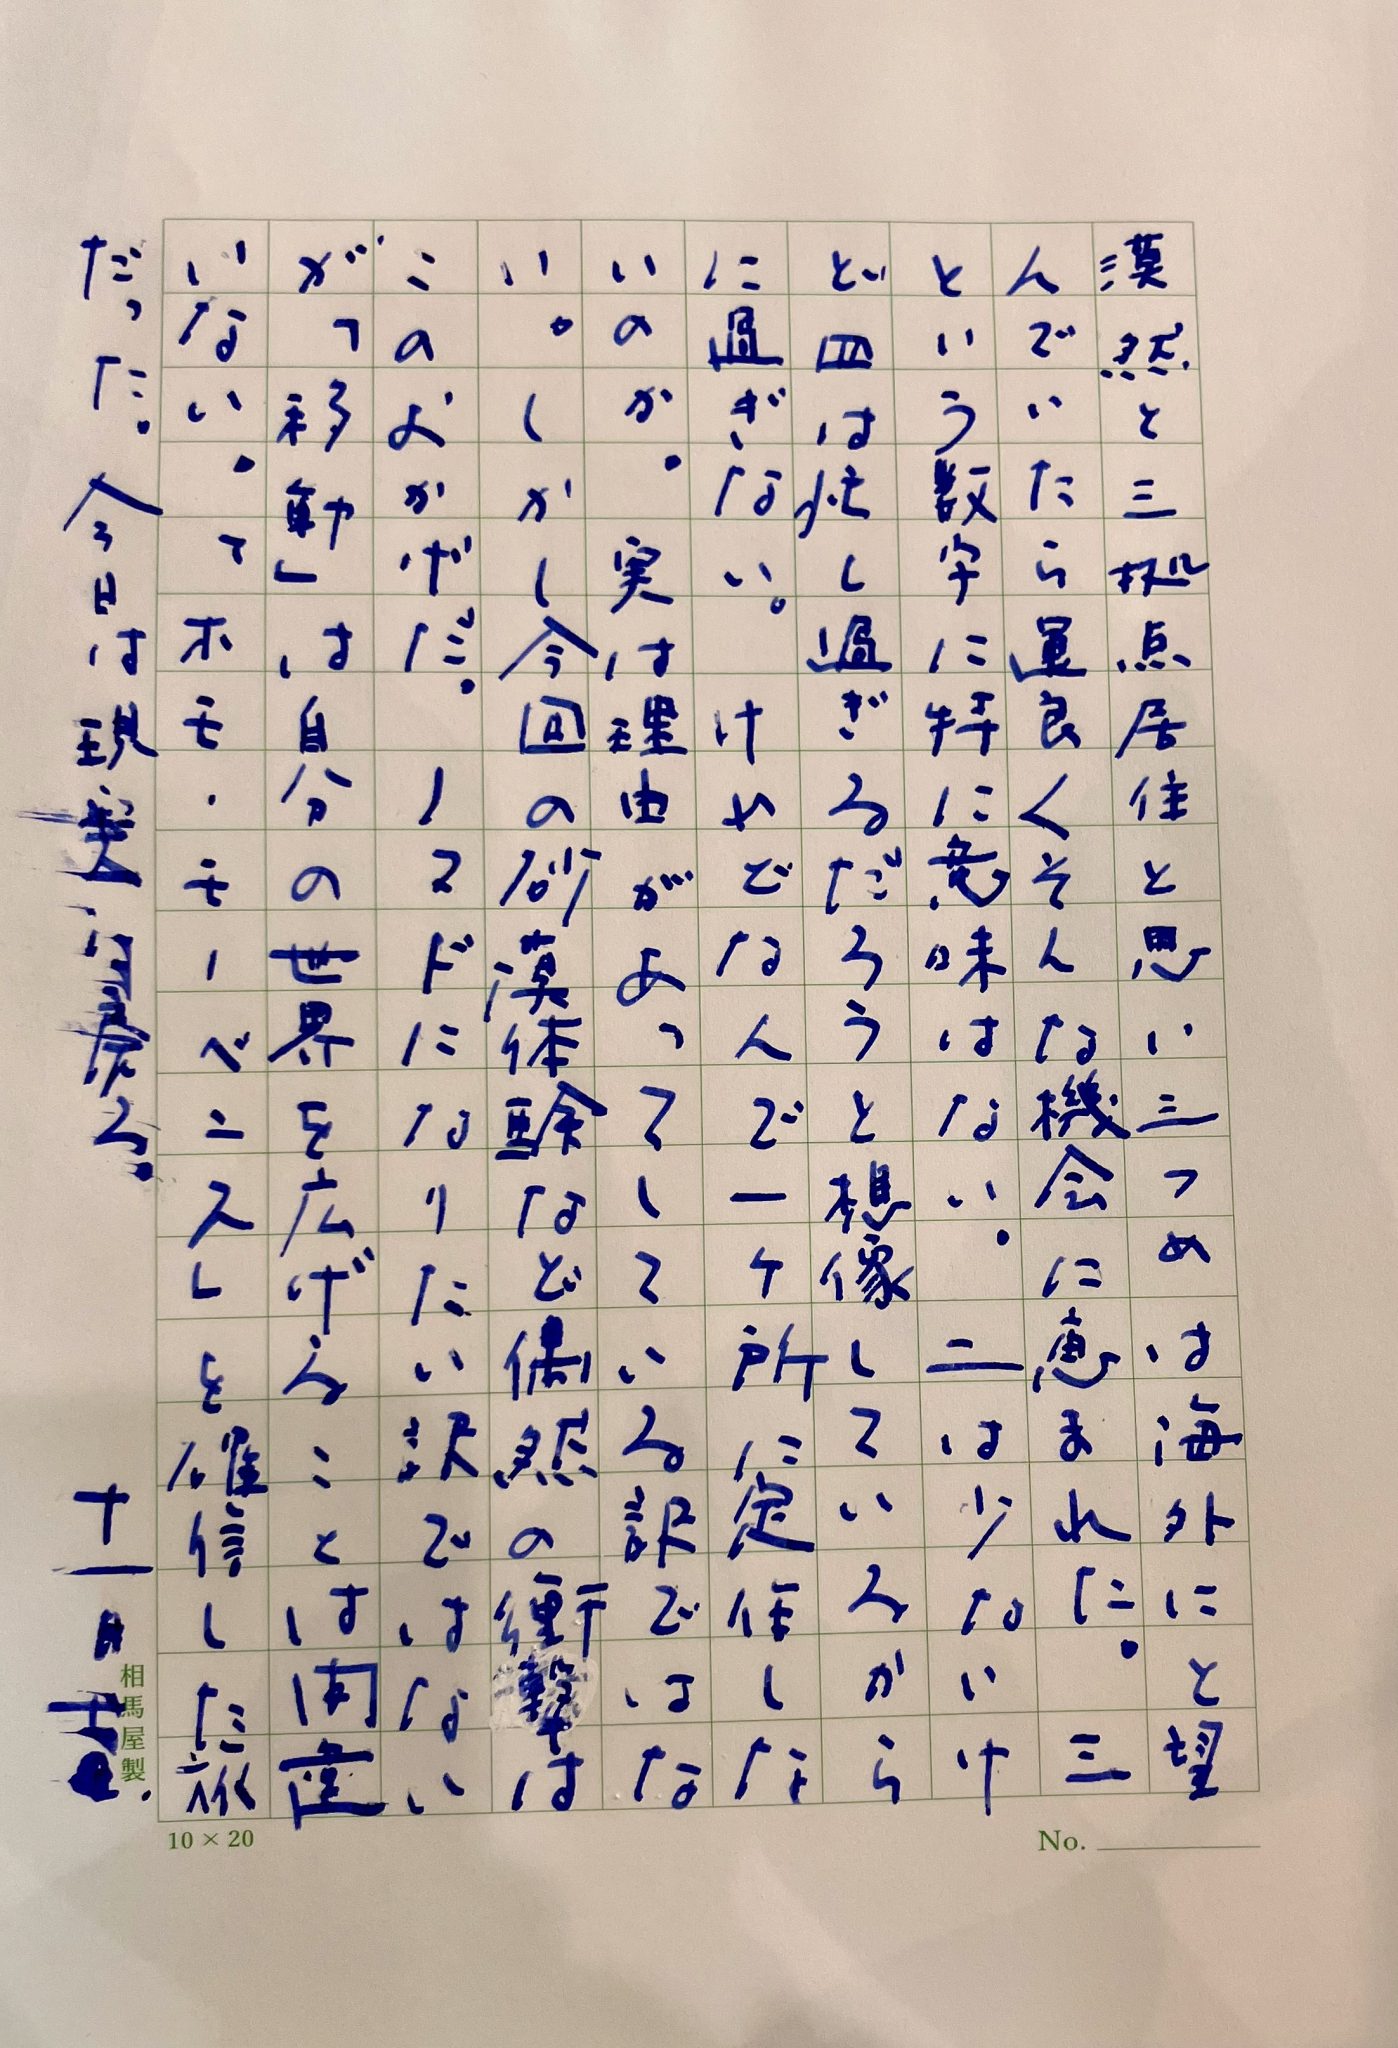 漠然と三拠点居住と思い三つめは海外にと望
んでいたら運良くそんな機会に恵まれた。　三
という数字に特に意味はない。　二は少ないけ
ど四は忙し過ぎるだろうと想像しているから
に過ぎない。　けれどなんで一ケ所に定住しな
いのか。　実は理由があってしている訳ではな
い。しかし今回の砂漠体験など偶然の衝撃は
このおかげだ。　ノマドになりたい訳ではない
が「移動」は自分の世界を広げることは間違
いない。　「ホモ・モーベンス」を確信した旅
だった。今日は現実に戻る。　十一月
相馬屋製
10×20
No.